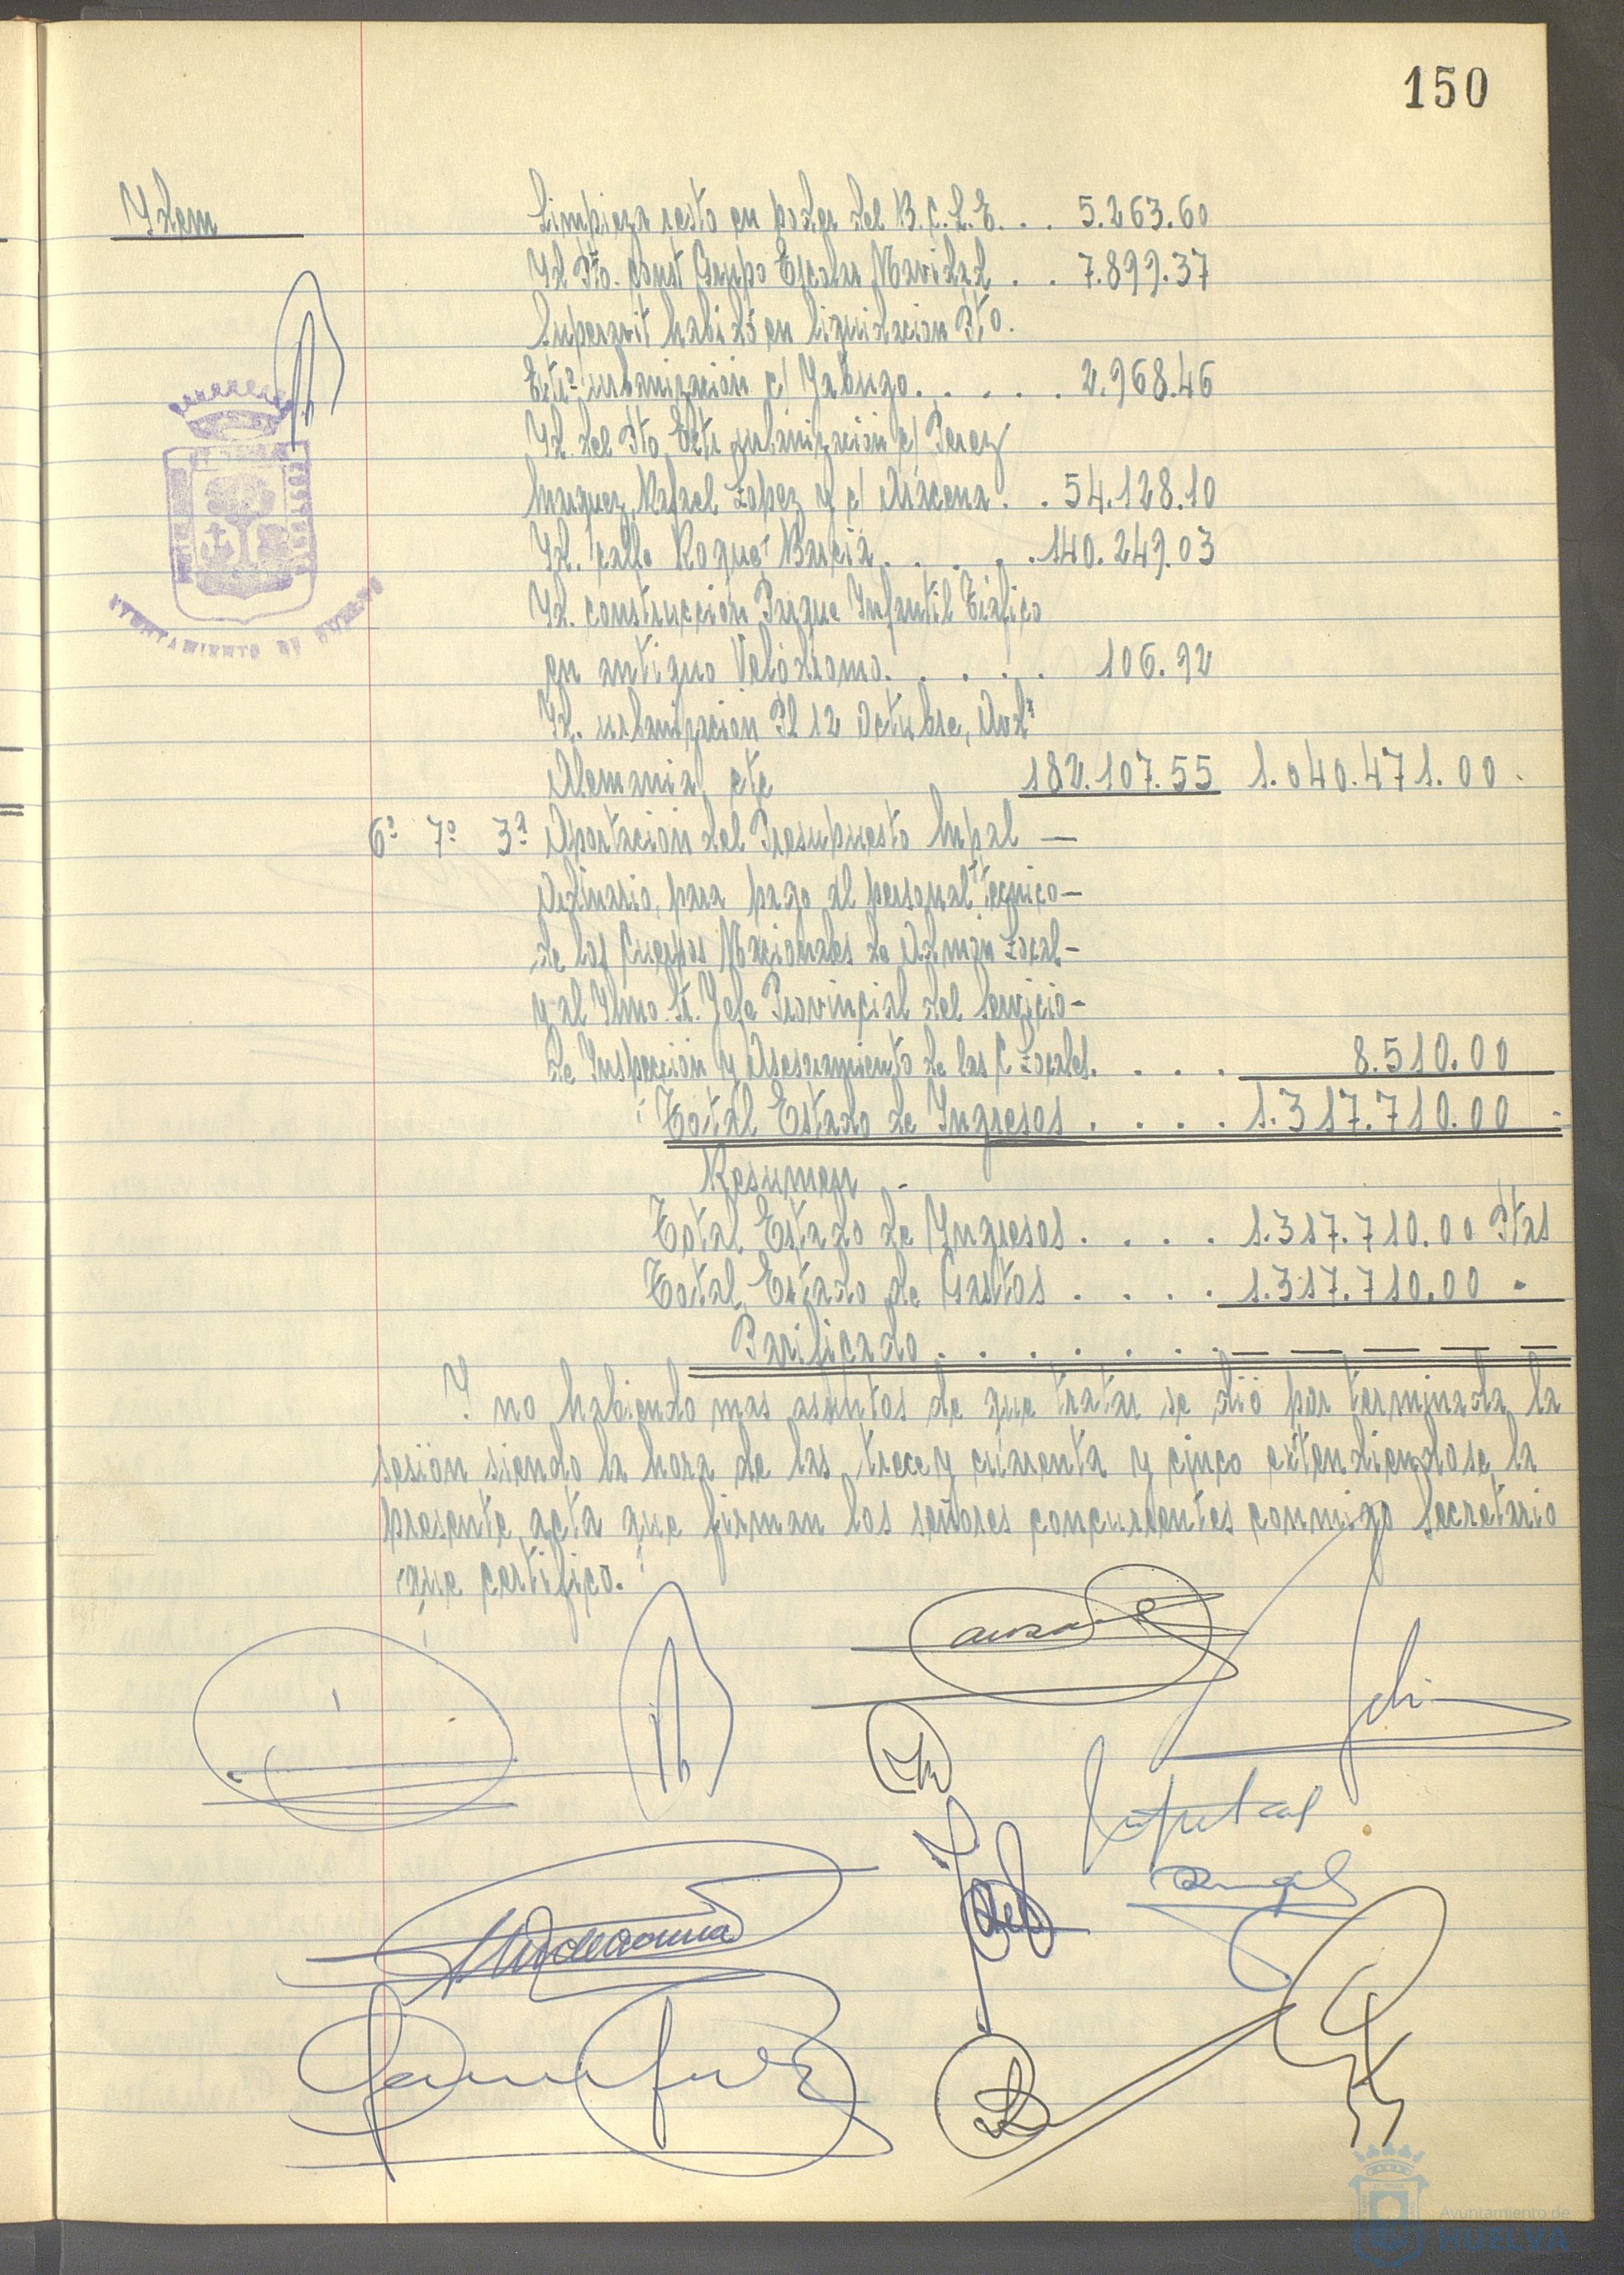 150
Ydem
Limpieza resto en poder del B.C.L.E. . . 5.263.60
Yd Pto. Const Grupo Escolar Navidad . . 7.899.37
Superavit habido en liquidacion Pto.
Extº urbanizacion c/ Jabugo. . . . . 2.968.46
Yd. del Pto Extr urbanizacion c/ Perez
Marquez, Rafael Lopez y c/ Aracena. . 54.128.10
Yd. calle Roque Barcia . . . . . 140.249.03
Yd. construccion Parque Ynfantil Trafico
en antiguo Velódromo. . . . . 106.92
Yd. urbanizacion Pl 12 Octubre, Avdª
Alemania, etc 182.107.55 1.040.471.00 -
6º 7º 3ª Aportacion del Presupuesto Mpal —
Ordinario, para pago al personal Tecnico —
de los Cuerpos Nacionales de Admon Local —
y al Ylmo. Sr. Jefe Provincial del Servicio —
de Ynspeccion y Asesoramiento de las C Locales. . . . 8.510.00
Total Estado de Yngresos . . . . 1.317.710.00 -
Resumen -
Total Estado de Yngresos . . . . 1.317.710.00 Ptas
Total Estado de Gastos . . . . 1.317.710.00 -
Parificado . . . . . . . — — — — —
Y no habiendo mas asuntos de que tratar se dió por terminada la
sesión siendo la hora de las trece y cuarenta y cinco extendiendose la
presente acta que firman los señores concurrentes conmigo Secretario
que certifico.
AYUNTAMIENTO DE HUELVA
Ayuntamiento de
HUELVA